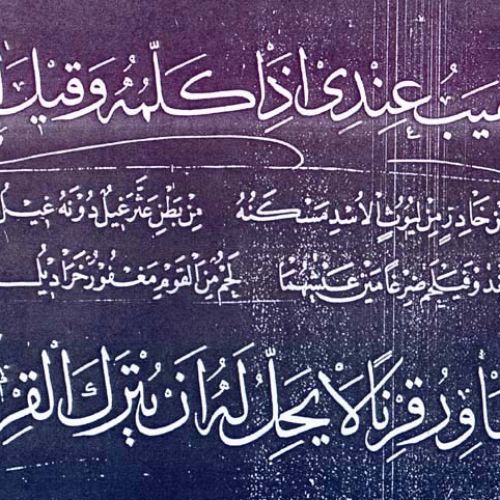 يَبُ عِنْدِي اذْ اكَلِّمُهُ وَقِيْلَ
خَادِرٍ مِنْ لُيُوثِ الْاُسْدِ مَسْكَنُهُ مِنْ بَطْنِ عَثَّرَ غِيْلٌ دُونَهُ غِيْلُ
دُو فَيُلْحِمُ ضِرْغَامَيْنِ عَيْشُهُمَا لَحْمٌ مِنَ الْقَوْمِ مَعْفُورٌ خَرَادِيلُ
سَاوِرُ قِرْنًا لَا يَحِلُّ لَهُ اَنْ يَتْرُكَ الْقِرْ